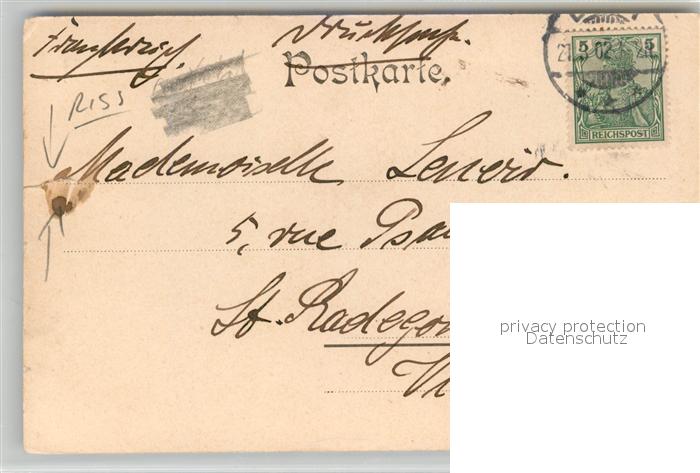 Frankreich. Drucksache.
Postkarte.
RISS
5 5
REICHSPOST
Mademoiselle Lenoir.
5, rue Psa
St. Radegon
Vi
privacy protection
Datenschutz